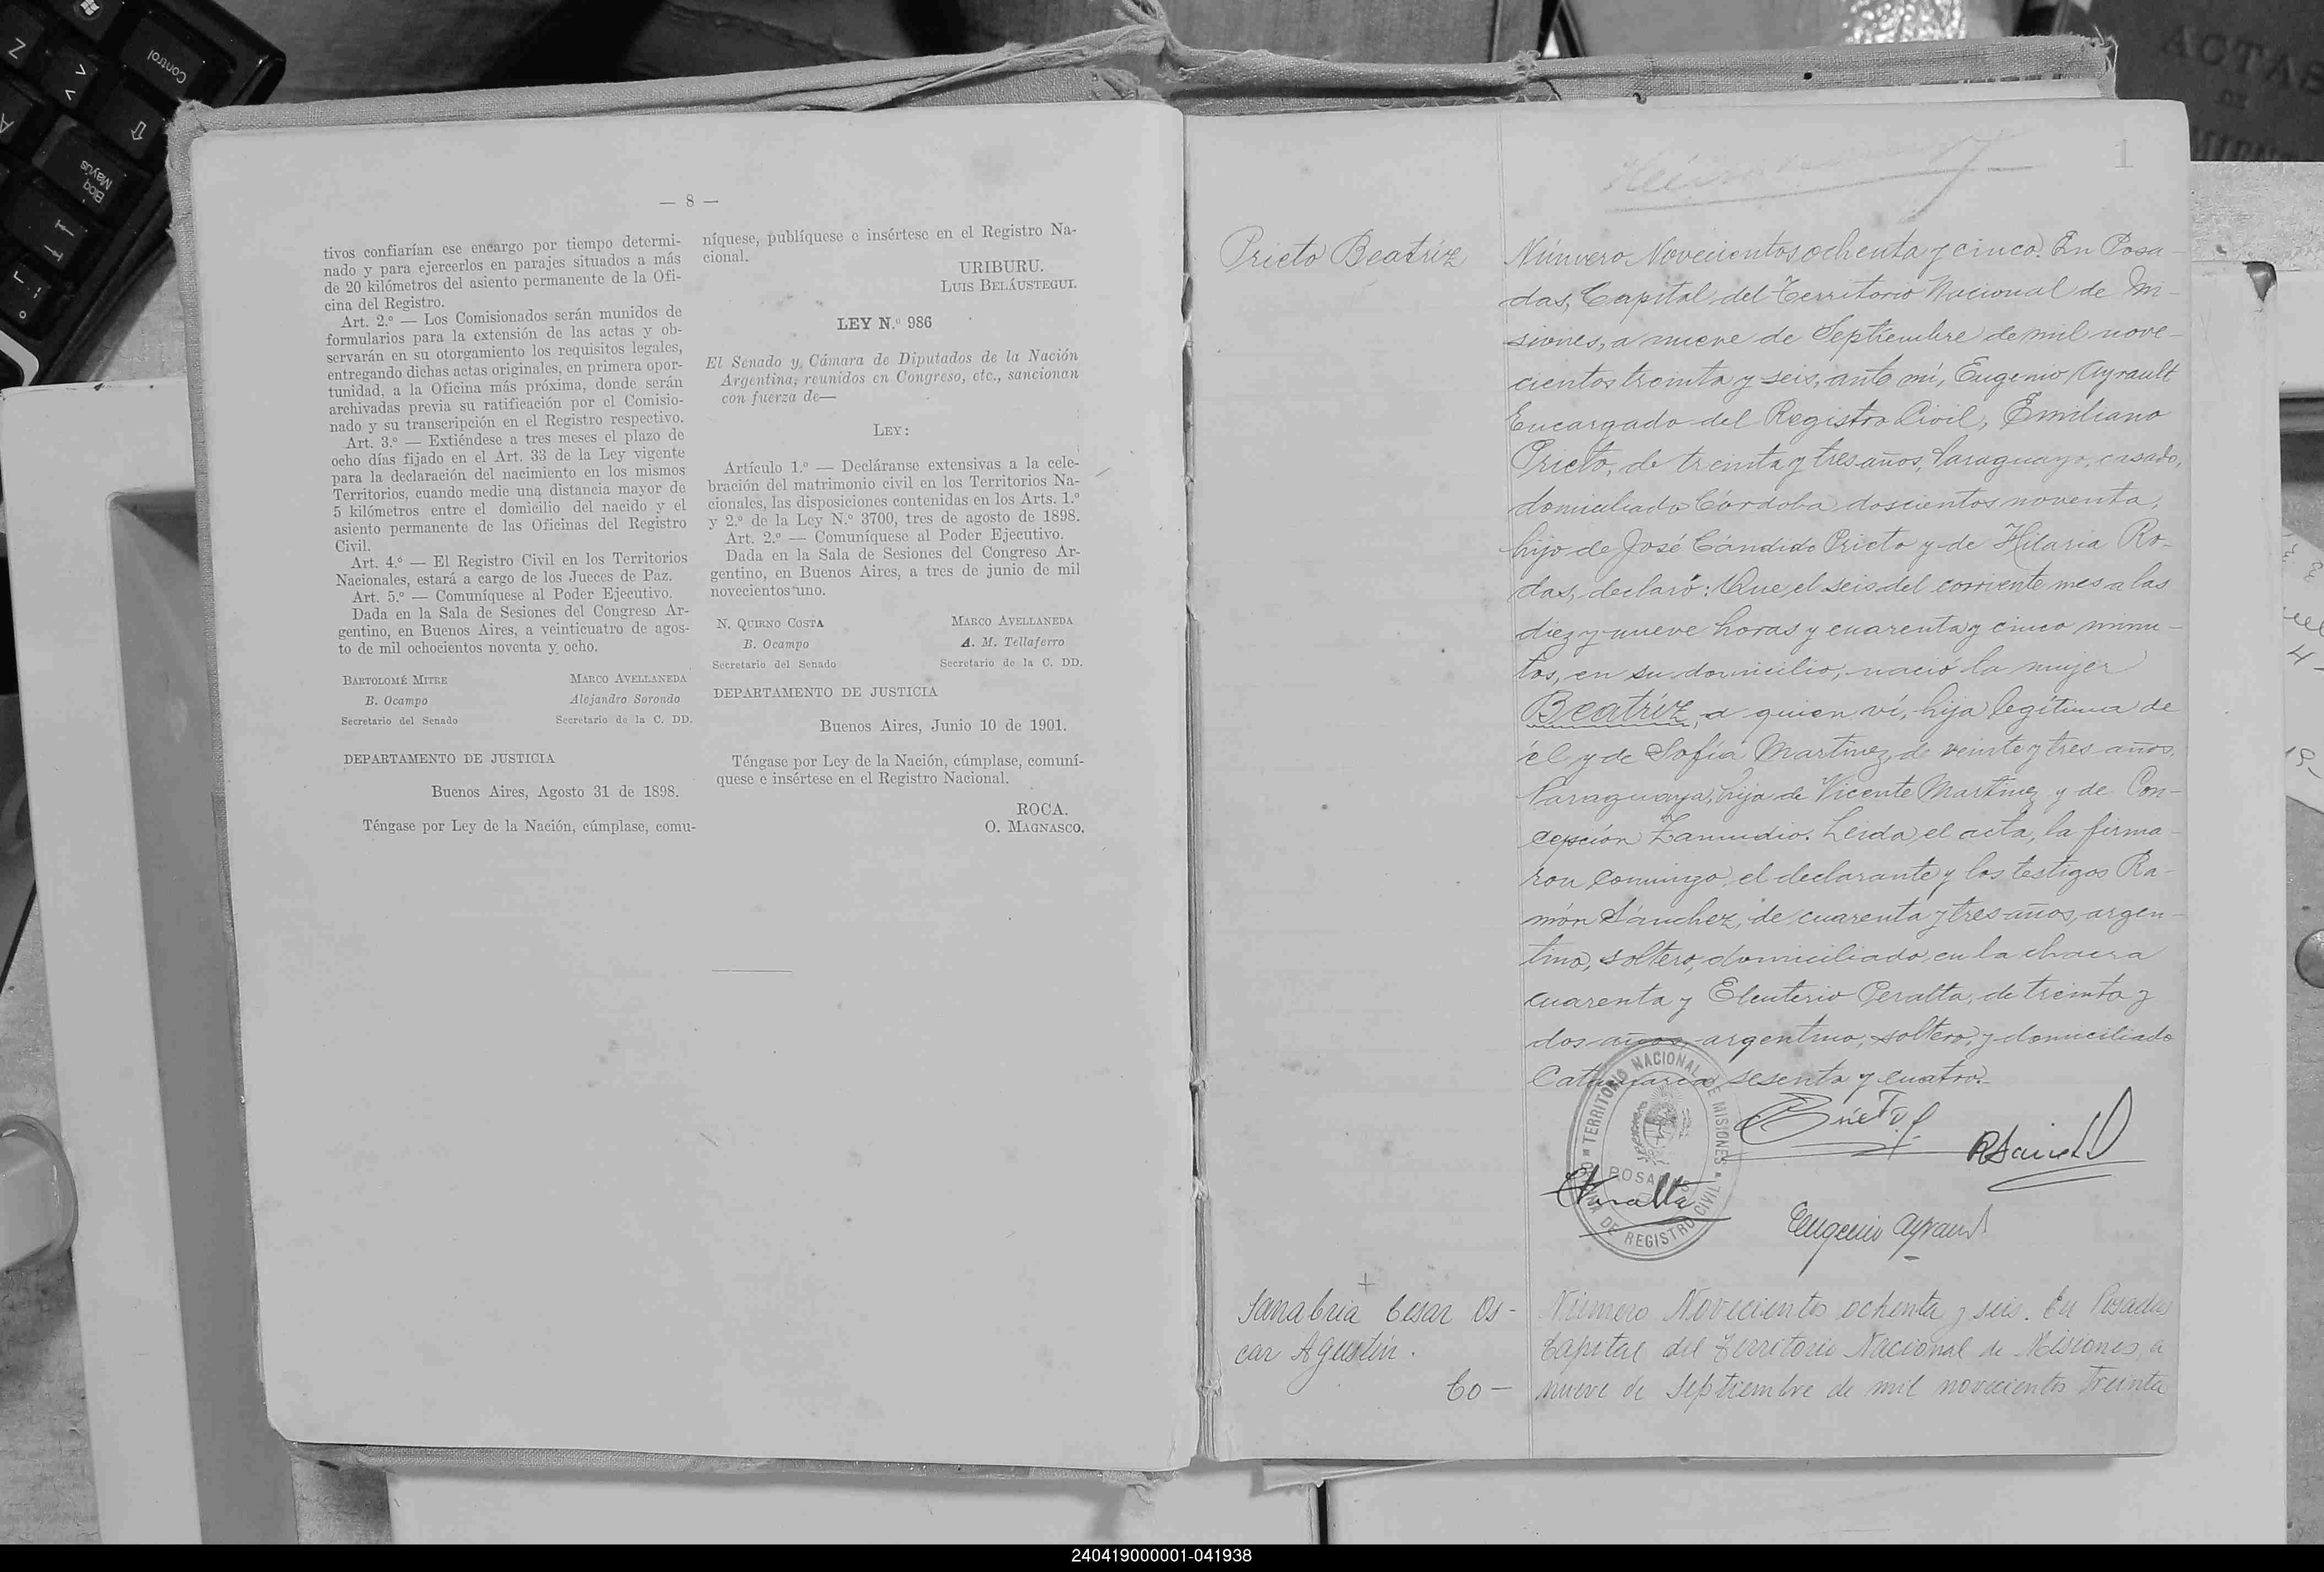 — 8 —
tivos confiarían ese encargo por tiempo determi-
nado y para ejercerlos en parajes situados a más
de 20 kilómetros del asiento permanente de la Ofi-
cina del Registro.
Art. 2.º — Los Comisionados serán munidos de
formularios para la extensión de las actas y ob-
servarán en su otorgamiento los requisitos legales,
entregando dichas actas originales, en primera opor-
tunidad, a la Oficina más próxima, donde serán
archivadas previa su ratificación por el Comisio-
nado y su transcripción en el Registro respectivo.
Art. 3.º — Extiéndese a tres meses el plazo de
ocho días fijado en el Art. 33 de la Ley vigente
para la declaración del nacimiento en los mismos
Territorios, cuando medie una distancia mayor de
5 kilómetros entre el domicilio del nacido y el
asiento permanente de las Oficinas del Registro
Civil.
Art. 4.º — El Registro Civil en los Territorios
Nacionales, estará a cargo de los Jueces de Paz.
Art. 5.º — Comuníquese al Poder Ejecutivo.
Dada en la Sala de Sesiones del Congreso Ar-
gentino, en Buenos Aires, a veinticuatro de agos-
to de mil ochocientos noventa y ocho.
BARTOLOMÉ MITRE MARCO AVELLANEDA
B. Ocampo Alejandro Sorondo
Secretario del Senado Secretario de la C. DD.
DEPARTAMENTO DE JUSTICIA
Buenos Aires, Agosto 31 de 1898.
Téngase por Ley de la Nación, cúmplase, comu-
níquese, publíquese e insértese en el Registro Na-
cional.
URIBURU.
LUIS BELÁUSTEGUI.
LEY N.º 986
El Senado y Cámara de Diputados de la Nación
Argentina, reunidos en Congreso, etc., sancionan
con fuerza de—
LEY:
Artículo 1.º — Decláranse extensivas a la cele-
bración del matrimonio civil en los Territorios Na-
cionales, las disposiciones contenidas en los Arts. 1.º
y 2.º de la Ley N.º 3700, tres de agosto de 1898.
Art. 2.º — Comuníquese al Poder Ejecutivo.
Dada en la Sala de Sesiones del Congreso Ar-
gentino, en Buenos Aires, a tres de junio de mil
novecientos uno.
N. QUIRNO COSTA MARCO AVELLANEDA
B. Ocampo A. M. Tellaferro
Secretario del Senado Secretario de la C. DD.
DEPARTAMENTO DE JUSTICIA
Buenos Aires, Junio 10 de 1901.
Téngase por Ley de la Nación, cúmplase, comuní-
quese e insértese en el Registro Nacional.
ROCA.
O. MAGNASCO.
1
Prieto Beatríz
Número Novecientos ochenta y cinco. En Posa-
das, Capital del Territorio Nacional de Mi-
siones, a nueve de Septiembre de mil nove-
cientos treinta y seis, ante mí, Eugenio Ayrault
Encargado del Registro Civil, Emiliano
Prieto, de treinta y tres años, Paraguayo, casado,
domiciliado Córdoba doscientos noventa,
hijo de José Cándido Prieto y de Hilaria Ro-
das, declaró: Que el seis del corriente mes a las
diez y nueve horas y cuarenta y cinco minu-
tos, en su domicilio, nació la mujer
Beatríz, a quien ví, hija legítima de
él y de Sofía Martínez, de veinte y tres años,
Paraguaya, hija de Vicente Martínez y de Con-
cepción Zamudio. Leida el acta, la firma-
ron conmigo, el declarante y los testigos Ra-
món Sánchez, de cuarenta y tres años, argen-
tino, soltero, domiciliado en la chacra
cuarenta y Eleuterio Peralta, de treinta y
dos años, argentino, soltero, y domiciliado
Catamarca sesenta y cuatro.
TERRITORIO NACIONAL DE MISIONES
POSADAS
OFICINA DE REGISTRO CIVIL
Eugenio Ayrault
Sanabria César Os-
car Agustín.
Co—
Número Novecientos ochenta y seis. En Posadas
Capital del Territorio Nacional de Misiones, a
nueve de Septiembre de mil novecientos treinta
Control
Bloq
Mayús
Z
A
ACTAS
DE
240419000001-041938